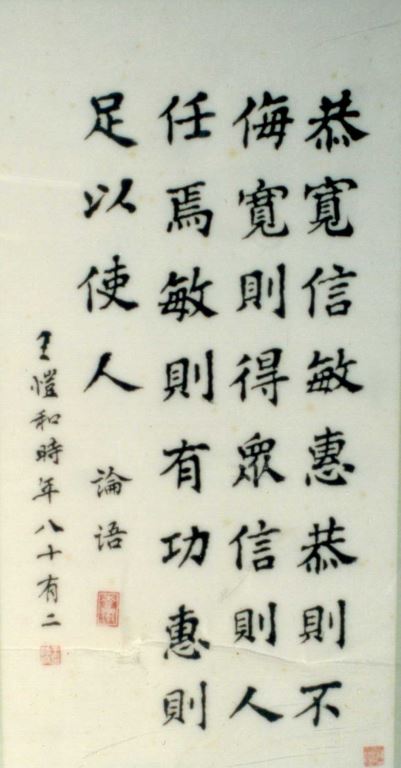 恭寬信敏惠恭則不
侮寬則得眾信則人
任焉敏則有功惠則
足以使人
論语
王愷和時年八十有二